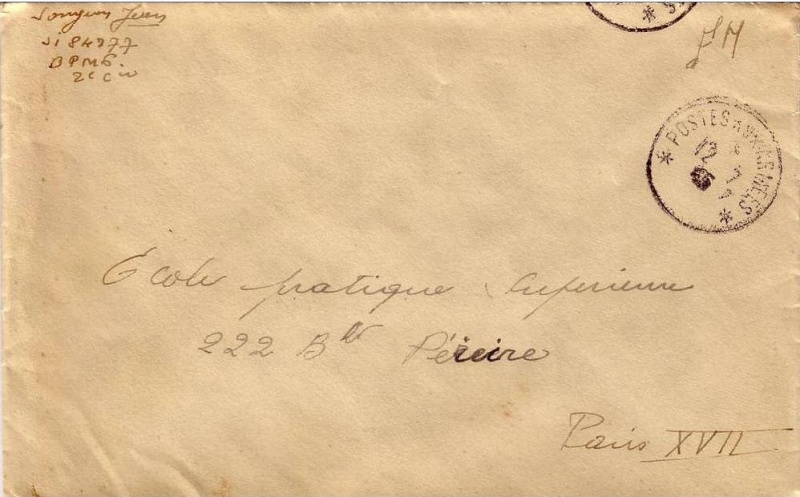 Jean
SP 84977
BPM
2e Cie
FM
* POSTES AUX ARMEES *
12
École pratique Supérieure
222 Bld Péreire
Paris XVII